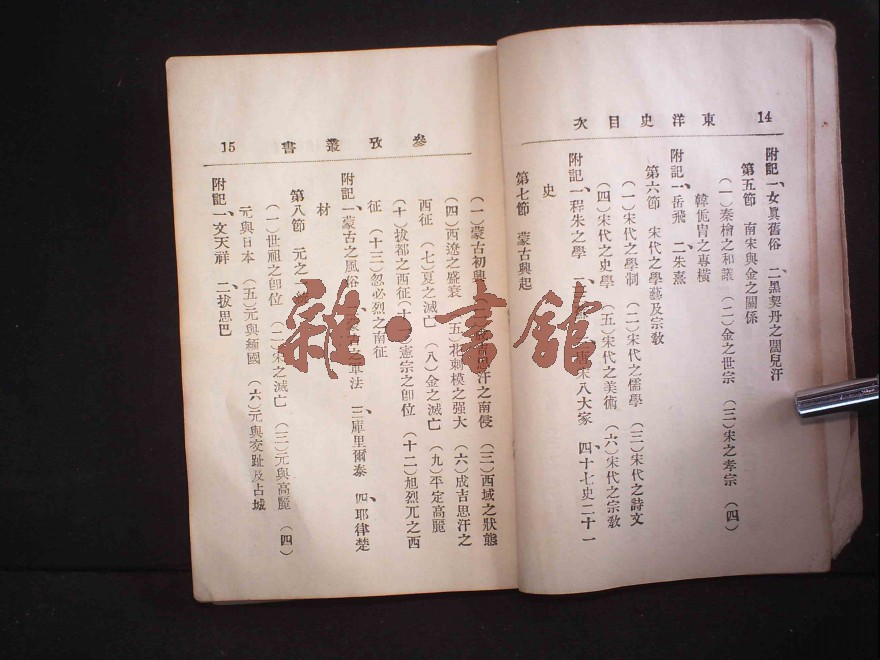 14
東洋史目次
附記一、女眞舊俗　二、黑契丹之闊兒汗
第五節　南宋與金之關係
（一）秦檜之和議　（二）金之世宗　（三）宋之孝宗　（四）
韓侂冑之專橫
附記一、岳飛　二、朱熹
第六節　宋代之學藝及宗敎
（一）宋代之學制　（二）宋代之儒學　（三）宋代之詩文
（四）宋代之史學　（五）宋代之美術　（六）宋代之宗敎
附記一、程朱之學　唐宋八大家　四、十七史二十一
史
第七節　蒙古興起
參攷叢書
15
（一）蒙古初興　成吉思汗之南侵　（三）西域之狀態
（四）西遼之盛衰　（五）花剌模之强大　（六）成吉思汗之
西征　（七）夏之滅亡　（八）金之滅亡　（九）平定高麗
（十）拔都之西征（十一）憲宗之卽位　（十二）旭烈兀之西
征　（十三）忽必烈之南征
附記一、蒙古之風俗　蒙古之軍法　三、庫里爾泰　四、耶律楚
材
第八節　元之
（一）世祖之卽位　（二）宋之滅亡　（三）元與高麗　（四）
元與日本　（五）元與緬國　（六）元與交趾及占城
附記一、文天祥　二、拔思巴
雜·書館